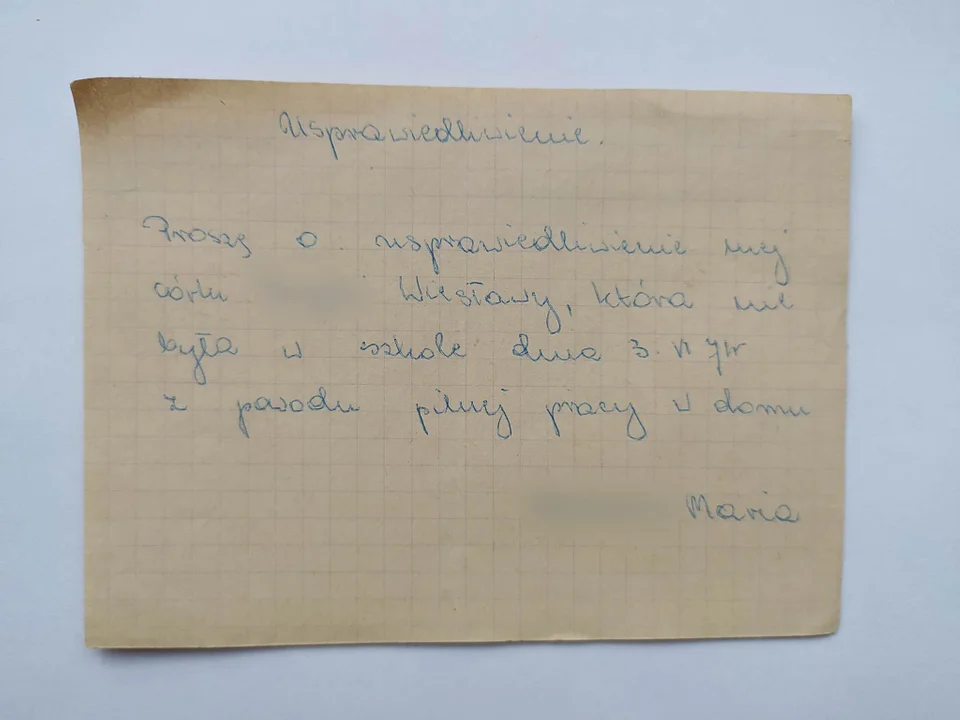 Usprawiedliwienie.
Proszę o usprawiedliwienie mej
córki Wiesławy, która nie
była w szkole dnia 3. VI 71r
z powodu pilnej pracy w domu
Maria